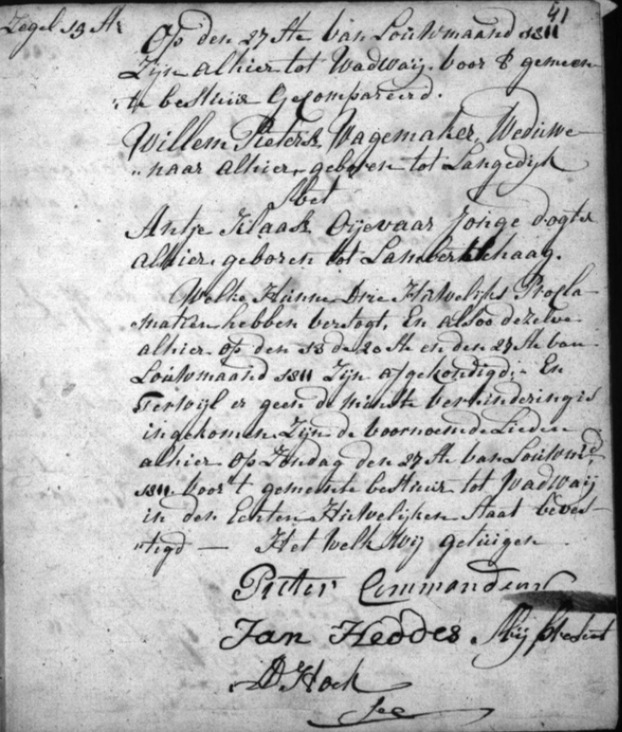 41
Zegel 19 St:
Op den 27 Ste van Louwmaand 1811
Zijn alhier tot Wadwaij voor 't gemeen
"te bestuur Gecompareerd.
Willem Pieters Wagemaker, Weduwe
"naar alhier, geboren tot Langedijk
Met
Antje Klaas Oijevaar Jonge dogter
alhier, geboren tot Lambertschaag.
Welke Hunne Drie Huwelijks Procla
matien hebben versogt, En alsoo dezelve
alhier op den 13 de 20 Ste en den 27 Ste van
Louwmaand 1811 Zijn afgekondigd; En
Terwijl er geen de minste verhindering is
ingekomen, Zijn de voornoemde Lieden
alhier op Zondag den 27 Ste van Louwmd
1811 Voor 't gemeente bestuur tot Wadwaij
in den Echten Huwelijken Staat beves
"tigd — Het welk Wij getuigen
Pieter Commandeur
Jan Heddes
D Hoek
Sec